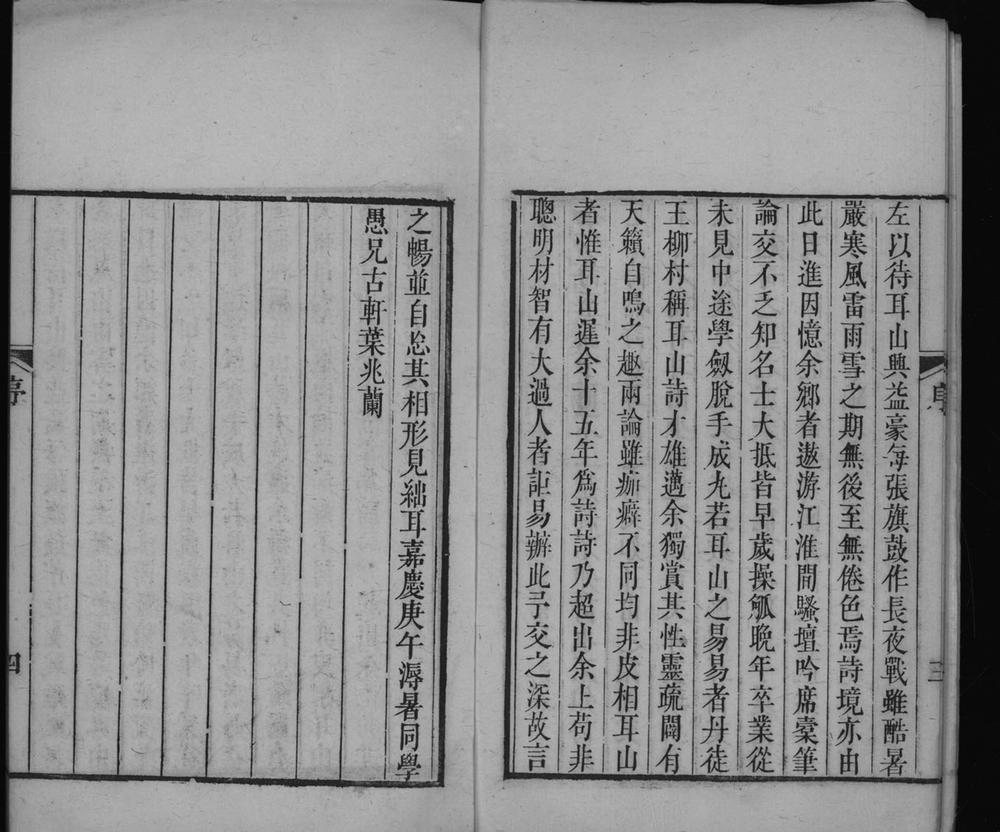 左以待耳山興益豪每張旗鼓作長夜戰雖酷暑
嚴寒風雷雨雪之期無後至無倦色焉詩境亦由
此日進因憶余鄉者遨游江淮間騷壇吟席槖筆
論交不乏知名士大抵皆早歲操觚晚年卒業從
未見中途學劒脫手成丸若耳山之易易者丹徒
王柳村稱耳山詩才雄邁余獨賞其性靈疏闊有
天籟自鳴之趣兩論雖痂癖不同均非皮相耳山
者惟耳山遲余十五年爲詩詩乃超出余上苟非
聰明材智有大過人者詎易辦此予交之深故言
之暢並自忘其相形見絀耳嘉慶庚午溽暑同學
愚兄古軒葉兆蘭
序
三
四